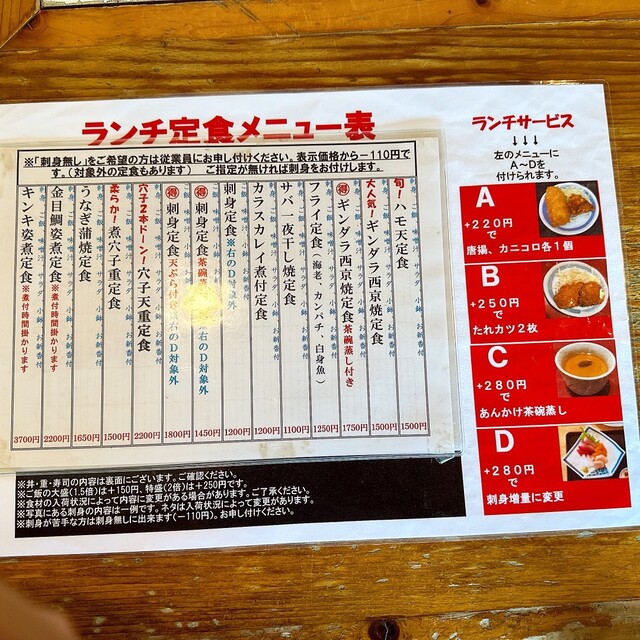 ランチ定食メニュー表
※「刺身無し」をご希望の方は従業員にお申し付けください。表示価格から−110円で
す。（対象外の定食もあります）　ご指定が無ければ刺身をお付けします。
旬！ハモ天定食
1500円
大人気！ギンダラ西京焼定食
1500円
㊝ギンダラ西京焼定食茶碗蒸し付き
1750円
フライ定食（海老、カンパチ、白身魚）
1250円
サバ一夜干し焼定食
1100円
カラスカレイ煮付定食
1200円
刺身定食※右のD対象外
1200円
㊝刺身定食茶碗蒸 右のD対象外
1450円
㊝刺身定食天ぷら付 右のD対象外
1800円
穴子2本ドーン！穴子天重定食
2200円
柔らか！煮穴子重定食
1500円
うなぎ蒲焼定食
1650円
金目鯛姿煮定食※煮付時間掛かります
2200円
キンキ姿煮定食※煮付時間掛かります
3700円
※丼・重・寿司の内容は裏面にございます。ご確認ください。
※ご飯の大盛(1.5倍)は＋150円、特盛(2倍)は＋250円です。
※食材の入荷状況によって内容に変更がある場合があります。ご了承ください。
※写真にある刺身の内容は一例です。ネタは入荷状況によって変更があります。
※刺身が苦手な方は刺身無しに出来ます(−110円)。お申し付けください。
ランチサービス
↓↓↓
左のメニューに
A〜Dを
付けられます。
A
+220円
で
唐揚、カニコロ各1個
B
+250円
で
たれカツ2枚
C
+280円
で
あんかけ茶碗蒸し
D
+280円
で
刺身増量に変更